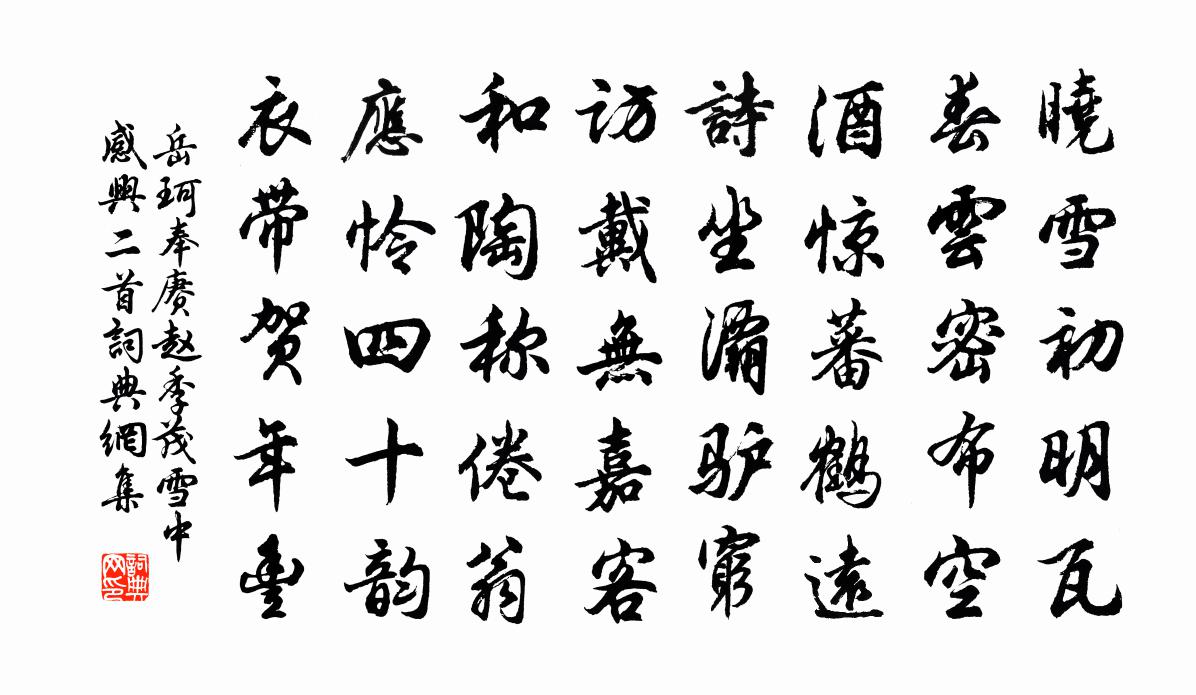 曉雪初明瓦
春雲密布空
酒惊蕃鶴遠
詩坐灞驴窮
訪戴無嘉客
和陶称倦翁
應怜四十韵
衣帶贺年豐
岳珂奉赓赵季茂雪中
感興二首詞典網集
詞典
网印